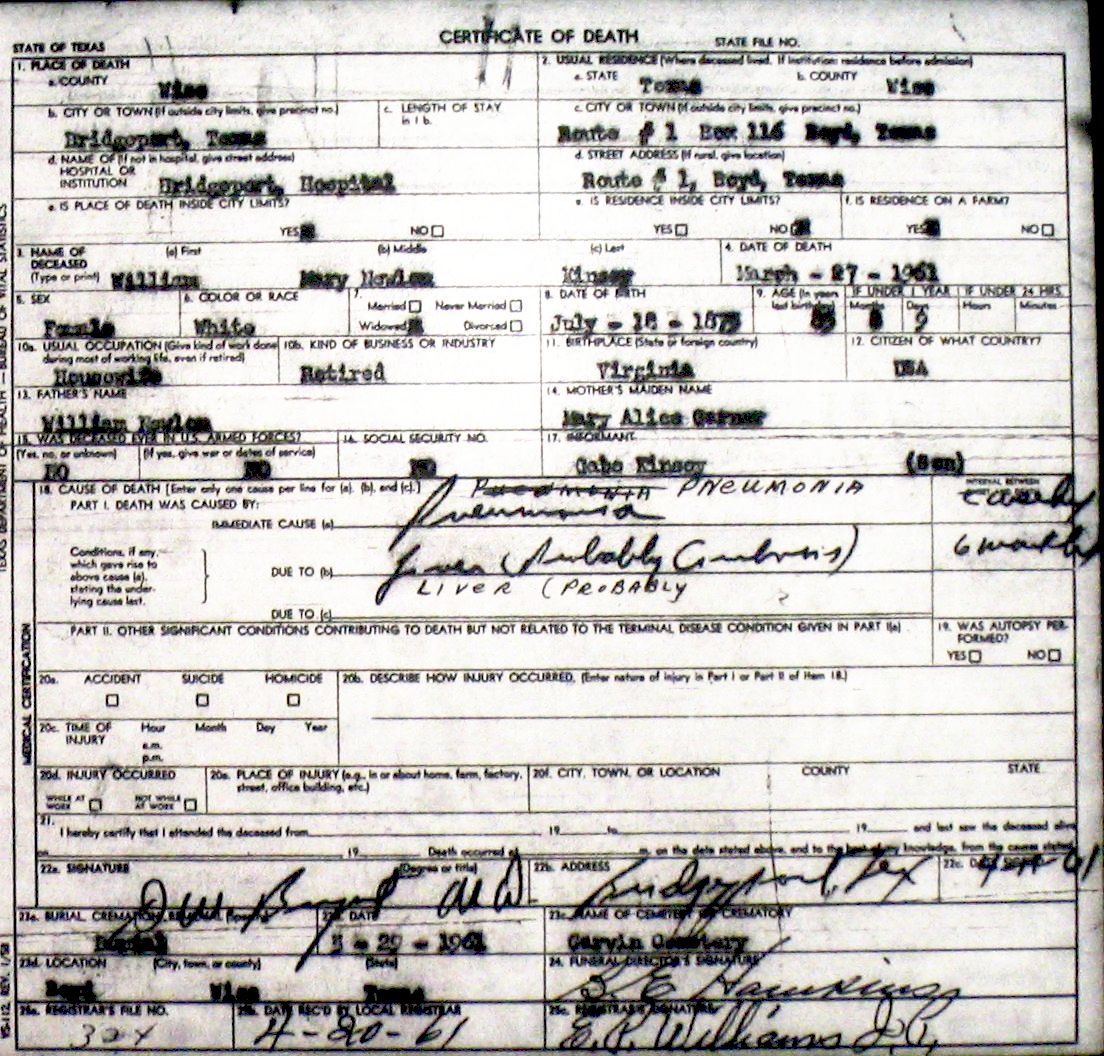 CERTIFICATE OF DEATH
STATE OF TEXAS
STATE FILE NO.
1. PLACE OF DEATH
a. COUNTY
Wise
2. USUAL RESIDENCE (Where deceased lived. If institution: residence before admission)
a. STATE
Texas
b. COUNTY
Wise
b. CITY OR TOWN (If outside city limits, give precinct no.)
Bridgeport, Texas
c. LENGTH OF STAY in 1 b.
c. CITY OR TOWN (If outside city limits, give precinct no.)
Route # 1 Box 116 Boyd, Texas
d. NAME OF (If not in hospital, give street address)
HOSPITAL OR
INSTITUTION
Bridgeport, Hospital
d. STREET ADDRESS (If rural, give location)
Route # 1, Boyd, Texas
e. IS PLACE OF DEATH INSIDE CITY LIMITS?
YES NO
e. IS RESIDENCE INSIDE CITY LIMITS?
YES NO
f. IS RESIDENCE ON A FARM?
YES NO
3. NAME OF DECEASED
(Type or print)
(a) First
William
(b) Middle
Mary Newlon
(c) Last
Kinsey
4. DATE OF DEATH
March - 27 - 1961
5. SEX
Female
6. COLOR OR RACE
White
7.
Married Never Married
Widowed Divorced
8. DATE OF BIRTH
July - 18 -
9. AGE (In years last birthday)
IF UNDER 1 YEAR
Months Days
8 9
IF UNDER 24 HRS.
Hours Minutes
10a. USUAL OCCUPATION (Give kind of work done during most of working life, even if retired)
Housewife
10b. KIND OF BUSINESS OR INDUSTRY
Retired
11. BIRTHPLACE (State or foreign country)
Virginia
12. CITIZEN OF WHAT COUNTRY?
USA
13. FATHER'S NAME
William Newlon
14. MOTHER'S MAIDEN NAME
Mary Alice Garner
15. WAS DECEASED EVER IN U.S. ARMED FORCES?
(Yes, no, or unknown)
NO
(If yes, give war or dates of service)
NO
16. SOCIAL SECURITY NO.
NO
17. INFORMANT
Gabe Kinsey (Son)
18. CAUSE OF DEATH [Enter only one cause per line for (a), (b), and (c).]
PART I. DEATH WAS CAUSED BY:
PNEUMONIA PNEUMONIA
IMMEDIATE CAUSE (a)
Pneumonia
INTERVAL BETWEEN
Conditions, if any, which gave rise to above cause (a), stating the under-lying cause last.
DUE TO (b)
Liver (Probably Cirrhosis)
6 months
LIVER (PROBABLY
DUE TO (c)
PART II. OTHER SIGNIFICANT CONDITIONS CONTRIBUTING TO DEATH BUT NOT RELATED TO THE TERMINAL DISEASE CONDITION GIVEN IN PART I(a)
19. WAS AUTOPSY PERFORMED?
YES NO
20a. ACCIDENT SUICIDE HOMICIDE
20b. DESCRIBE HOW INJURY OCCURRED. (Enter nature of injury in Part I or Part II of item 18.)
20c. TIME OF INJURY
Hour Month Day Year
a.m.
p.m.
20d. INJURY OCCURRED
WHILE AT WORK NOT WHILE AT WORK
20e. PLACE OF INJURY (e.g., in or about home, farm, factory, street, office building, etc.)
20f. CITY, TOWN, OR LOCATION COUNTY STATE
21.
I hereby certify that I attended the deceased from 19 to 19 and last saw the deceased alive
on 19 Death occurred at m. on the date stated above, and to the best of my knowledge, from the causes stated.
22a. SIGNATURE (Degree or title)
M D
22b. ADDRESS
Bridgeport, Tex
22c. DATE SIGNED
23a. BURIAL, CREMATION, REMOVAL (Specify)
Burial
23b. DATE
3 - 29 - 1961
23c. NAME OF CEMETERY OR CREMATORY
Garvin Cemetery
23d. LOCATION (City, town, or county) (State)
Boyd Wise Texas
24. FUNERAL DIRECTOR'S SIGNATURE
B. E. Hawkins
25a. REGISTRAR'S FILE NO.
324
25b. DATE REC'D BY LOCAL REGISTRAR
4-20-61
25c. REGISTRAR'S SIGNATURE
E. P. Williams J.P.
TEXAS DEPARTMENT OF HEALTH — BUREAU OF VITAL STATISTICS
MEDICAL CERTIFICATION
VS-112 REV. 1/58